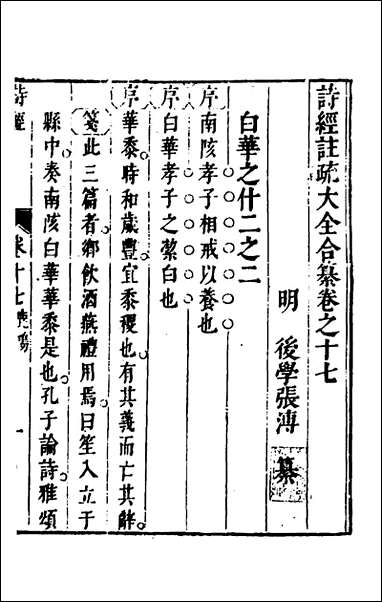 詩經註疏大全合纂卷之十七
明 後學張溥 纂
白華之什二之二
序 南陔孝子相戒以養也
序 白華孝子之絜白也
序 華黍時和歲豐宜黍稷也有其義而亡其辭
箋 此三篇者鄉飲酒燕禮用焉曰笙入立于
縣中奏南陔白華華黍是也孔子論詩雅頌
詩經 卷十七 一